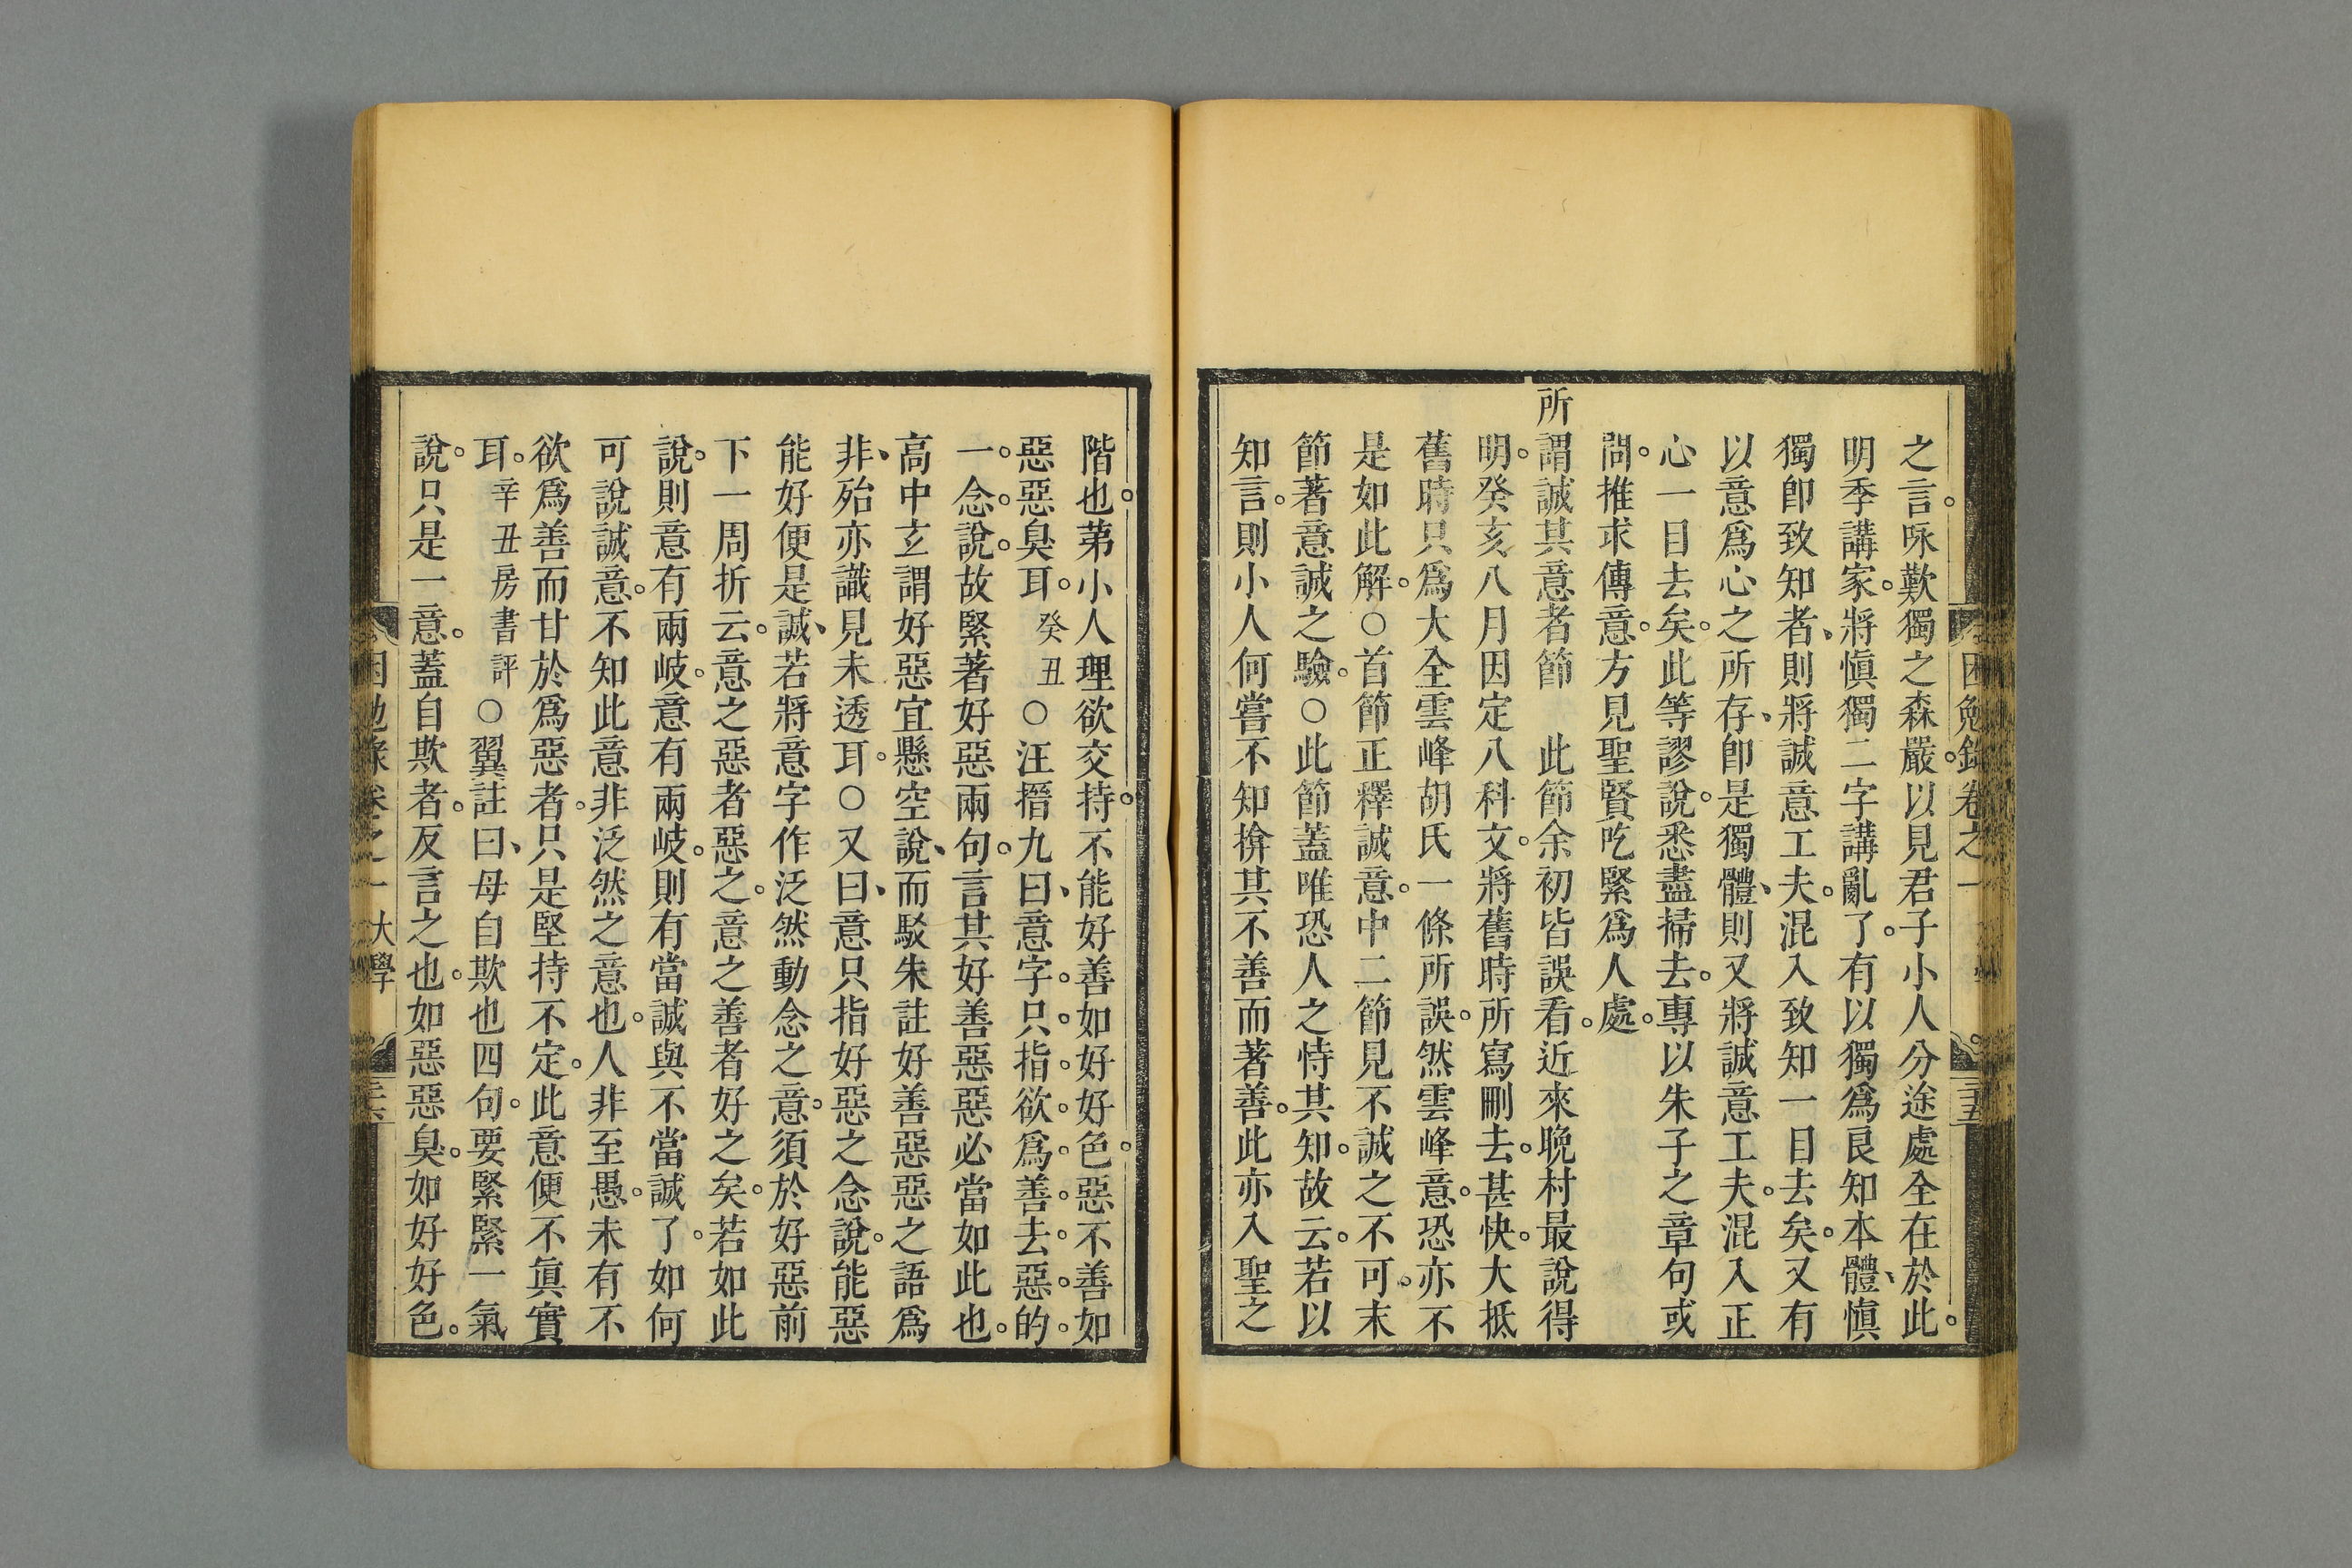 困勉錄卷之一
三五
之言。咏歎獨之森嚴。以見君子小人分途處全在於此。
明季講家。將愼獨二字講亂了。有以獨爲良知本體、愼
獨卽致知者、則將誠意工夫。混入致知一目去矣。又有
以意爲心之所存、卽是獨體、則又將誠意工夫。混入正
心一目去矣。此等謬說。悉盡掃去。專以朱子之章句或
問。推求傳意。方見聖賢吃緊爲人處。
所謂誠其意者節　此節余初皆誤看。近來晚村最說得
明。癸亥八月因定八科文。將舊時所寫刪去。甚快。大抵
舊時只爲大全雲峰胡氏一條所誤。然雲峰意。恐亦不
是如此解。○首節正釋誠意。中二節見不誠之不可。末
節著意誠之驗。○此節蓋唯恐人之恃其知。故云。若以
知言。則小人何嘗不知揜其不善而著善。此亦入聖之
階也。第小人理欲交持。不能好善如好好色。惡不善如
惡惡臭耳。癸丑○汪摺九曰、意字。只。指。欲。爲。善。去。惡。的。
一。念。說。故緊著好惡兩句。言其好善惡惡必當如此也。
高中玄謂好惡宜懸空說、而駁朱註好善惡惡之語爲
非、殆亦識見未透耳。○又曰、意只指好惡之念說。能惡
能好便是誠、若將意字作泛然動念之意。須於好惡前
下一周折云。意之惡者惡之。意之善者好之矣。若如此
說。則意有兩岐。意有兩岐。則有當誠與不當誠了。如何
可說誠意。不知此意非泛然之意也。人非至愚。未有不
欲爲善而甘於爲惡者。只是堅持不定。此意便不眞實
耳。辛丑房書評○翼註曰、毋自欺也四句。要緊緊一氣
說。只是一意。蓋自欺者。反言之也。如惡惡臭。如好好色。
困勉錄卷之一　大學